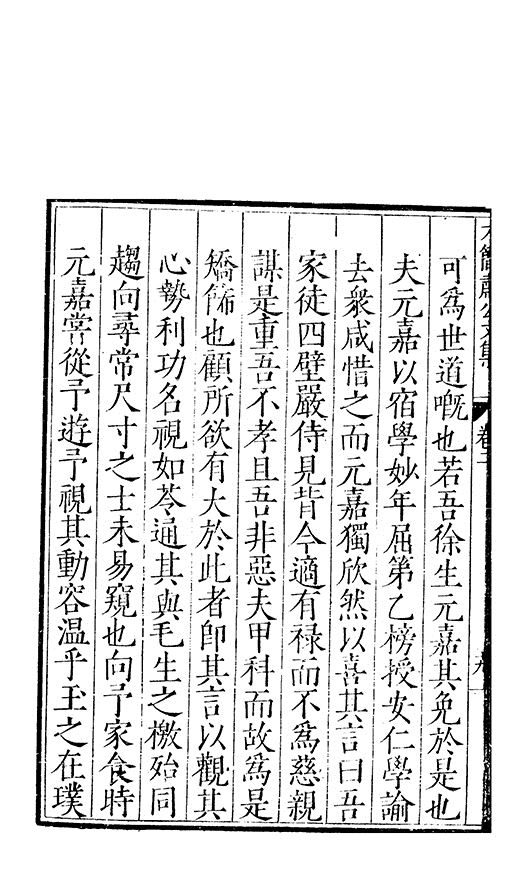 可爲世道嘅也若吾徐生元嘉其免於是也
夫元嘉以宿學妙年屈第乙榜授安仁學諭
去衆咸惜之而元嘉獨欣然以喜其言曰吾
家徒四壁嚴侍見背今適有禄而不爲慈親
謀是重吾不孝且吾非惡夫甲科而故爲是
矯餙也顧所欲有大於此者即其言以觀其
心勢利功名視如苓通其與毛生之檄殆同
趨向尋常尺寸之士未易窺也向予家食時
元嘉甞從予遊予視其動容温乎玉之在璞